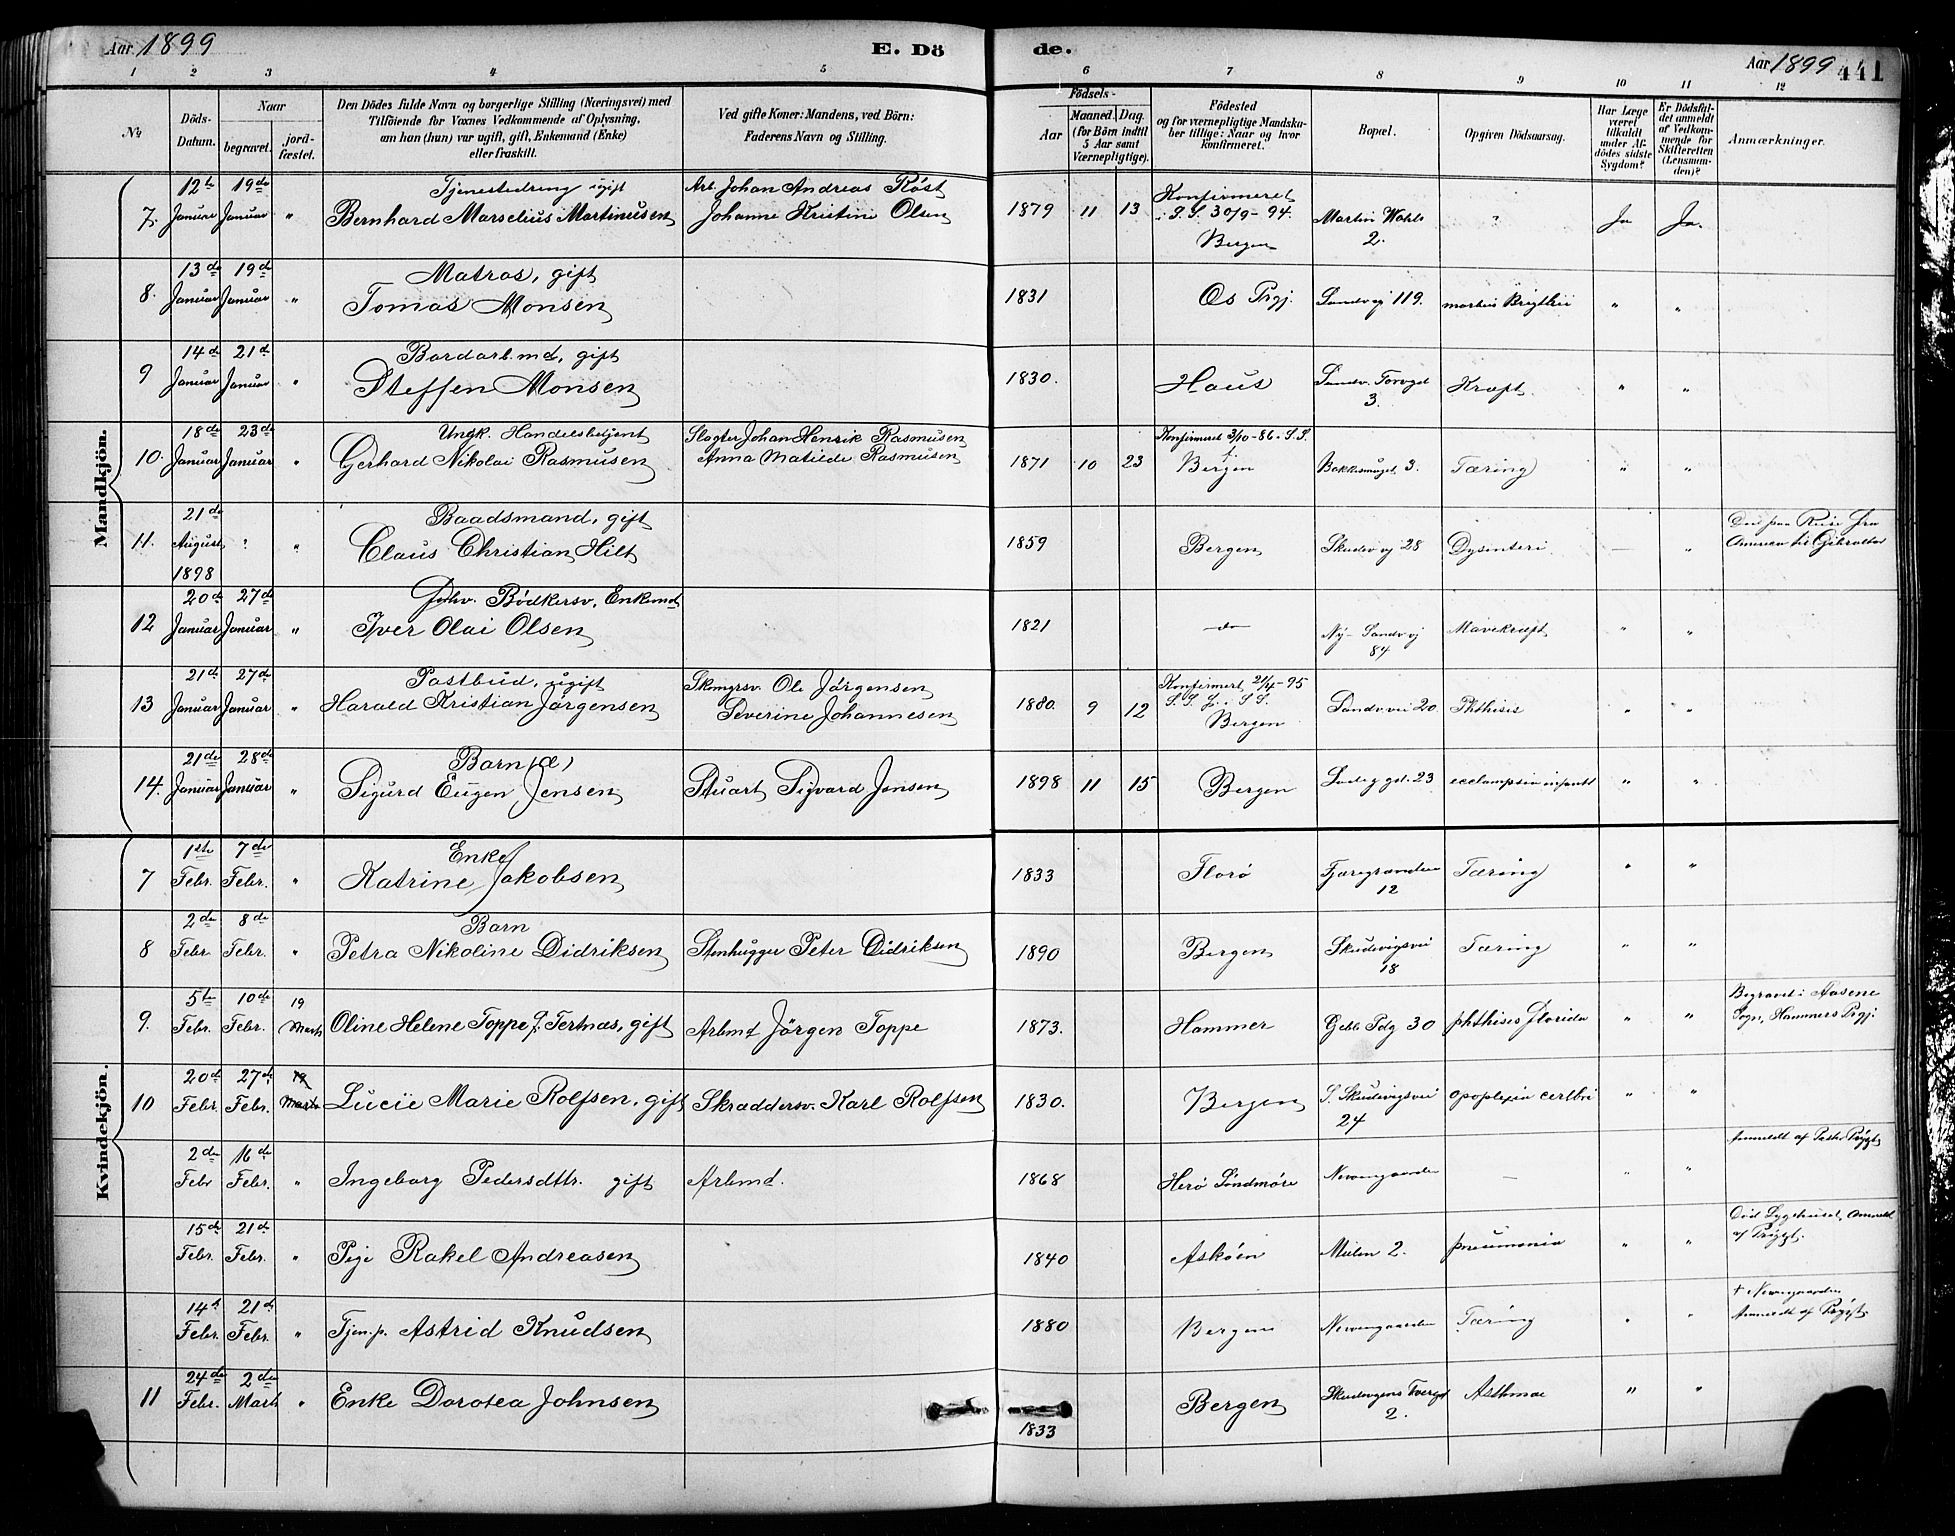 Aar 1899 E. Dö
de. Aar 1899 441
1 2 3 4 5 6 7 8 9 10 11 12
№
Döds-Datum.
Naar
begravet.
jordfæstet.
Den Dödes fulde Navn og borgerlige Stilling (Næringsvei) med
Tilföiende for Voxnes Vedkommende af Oplysning,
om han (hun) var ugift, gift, Enkemand (Enke)
eller fraskilt.
Ved gifte Koner: Mandens, ved Börn:
Faderens Navn og Stilling.
Födsels-
Aar
Maaned. Dag.
(for Börn indtil
5 Aar samt
Værnepligtige).
Födested
og for værnepligtige Mandskaber tillige: Naar og hvor
Konfirmeret.
Bopæl.
Opgiven Dödsaarsag.
Har Læge
været
tilkaldt
under Afdödes sidste
Sygdom?
Er Dödsfaldet anmeldt
af Vedkommende for
Skifteretten
(Lensmanden)?
Anmærkninger.
Mandkjön.
12te 19de Tjenestedreng ugift Arb. Johan Andreas Röst Konfirmeret
7. Januar Januar " Bernhard Marselius Martinusen Johanne Kristine Olsen 1879 11 13 i S.S. 30/9-94. Martin Wahls " Ja Ja.
Bergen 2.
13de 19de Matros, gift
8. Januar Januar " Tomas Monsen 1831 Os Prgj. Sandvvj 119. morbus Brigthii " "
14de 21de Bordarb.md, gift
9 Januar Januar " Steffen Monsen 1830. Haus Sandv. Torvgd Kræft " "
3.
18de 23de Ungk. Handelsbetjent Slagter Johan Henrik Rasmusen Konfirmeret 3/10-86 i S.S.
10. Januar Januar " Gerhard Nikolai Rasmusen Anna Matilde Rasmusen 1871 10 23 Bergen 3. Tæring " "
21de Baadsmand, gift Død paa Reise fra
11. August " " Claus Christian Hilt 1859 Bergen Skudevvj 28 Dysenteri — " til Gibraltar
1898
20de 27de Forhv. Bödkersv. Enkemd
12 Januar Januar " Iver Olai Olsen 1821 do Ny-Sandvvj Mavekræft " "
84
21de 27de Postbud, ugift Skomgrsv. Ole Jörgensen Konfirmert 21/4-95
13 Januar Januar " Harald Kristian Jörgensen Severine Johannesen 1880. 9 12 Bergen Sandv.vei 20 Phthisis " "
21de 28de Barn (Æ)
14. Januar Januar " Sigurd Eugen Jensen Stuart Sigvard Jensen 1898 11 15 Bergen 23 ecclampsia infantil " "
Kvindekjön.
1ste 7de Enke
7 Febr. Febr. " Katrine Jakobsen 1833 Florö Fjæregranden Tæring " "
12
2de 8de Barn
8 Febr. Febr. " Petra Nikoline Didriksen Stenhugger Peter Didriksen 1890 Bergen Skudevigsvei Tæring " "
18
5te 10de 19 Begravet i Aasene
9. Febr. Febr. Marts Oline Helene Toppe f. Tertnæs, gift Arbmd Jörgen Toppe 1873. Hammer 30 phthisis florida " " Sogn, Hammers Prgj.
20de 27de 19
10 Febr. Febr. Marts Lucie Marie Rolfsen, gift Skræddersv. Karl Rolfsen 1830. Bergen S. Skudevigsvei apoplexia cerebri " "
24
2de 16de Anmeldt af
Febr Febr. " Ingeborg Pedersdttr. gift Arbmd. 1868 Herö Söndmöre Nevengaarden — " "
15de 21de Død Sygehuset, Anmeldt
Febr. Febr. " Pige Rakel Andreasen 1840 Asköen Mulen 2. pneumonia " " af
14de 21de + Nevengaarden
Febr. Febr " Tjen.p. Astrid Knudsen 1880 Bergen Nevengaarden Tæring " " Anmeldt af
24de 2de
11 Febr. Marts " Enke Dorotea Johnsen 1833 Bergen Skudevigens Tverrgd Asthmae " "
2.